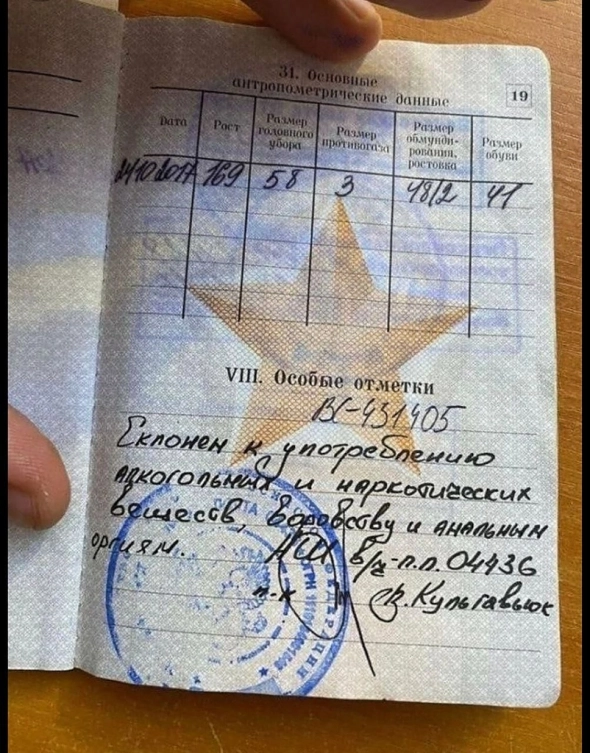 31. Основные
антропометрические данные
19
Дата Рост Размер головного убора Размер противогаза Размер обмунди-рования, ростовка Размер обуви
24.10.2017 169 58 3 48/2 41
VIII. Особые отметки
ВС-431405
Склонен к употреблению
алкогольных и наркотических
веществ, воровству и анальным
оргиям. НШ в/ч-п.п. 04436
п-к О. Культавьюк